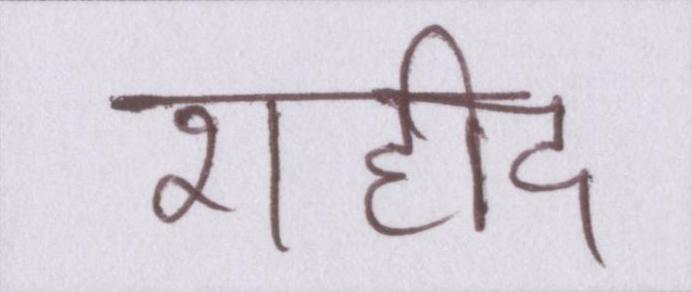 शहीद